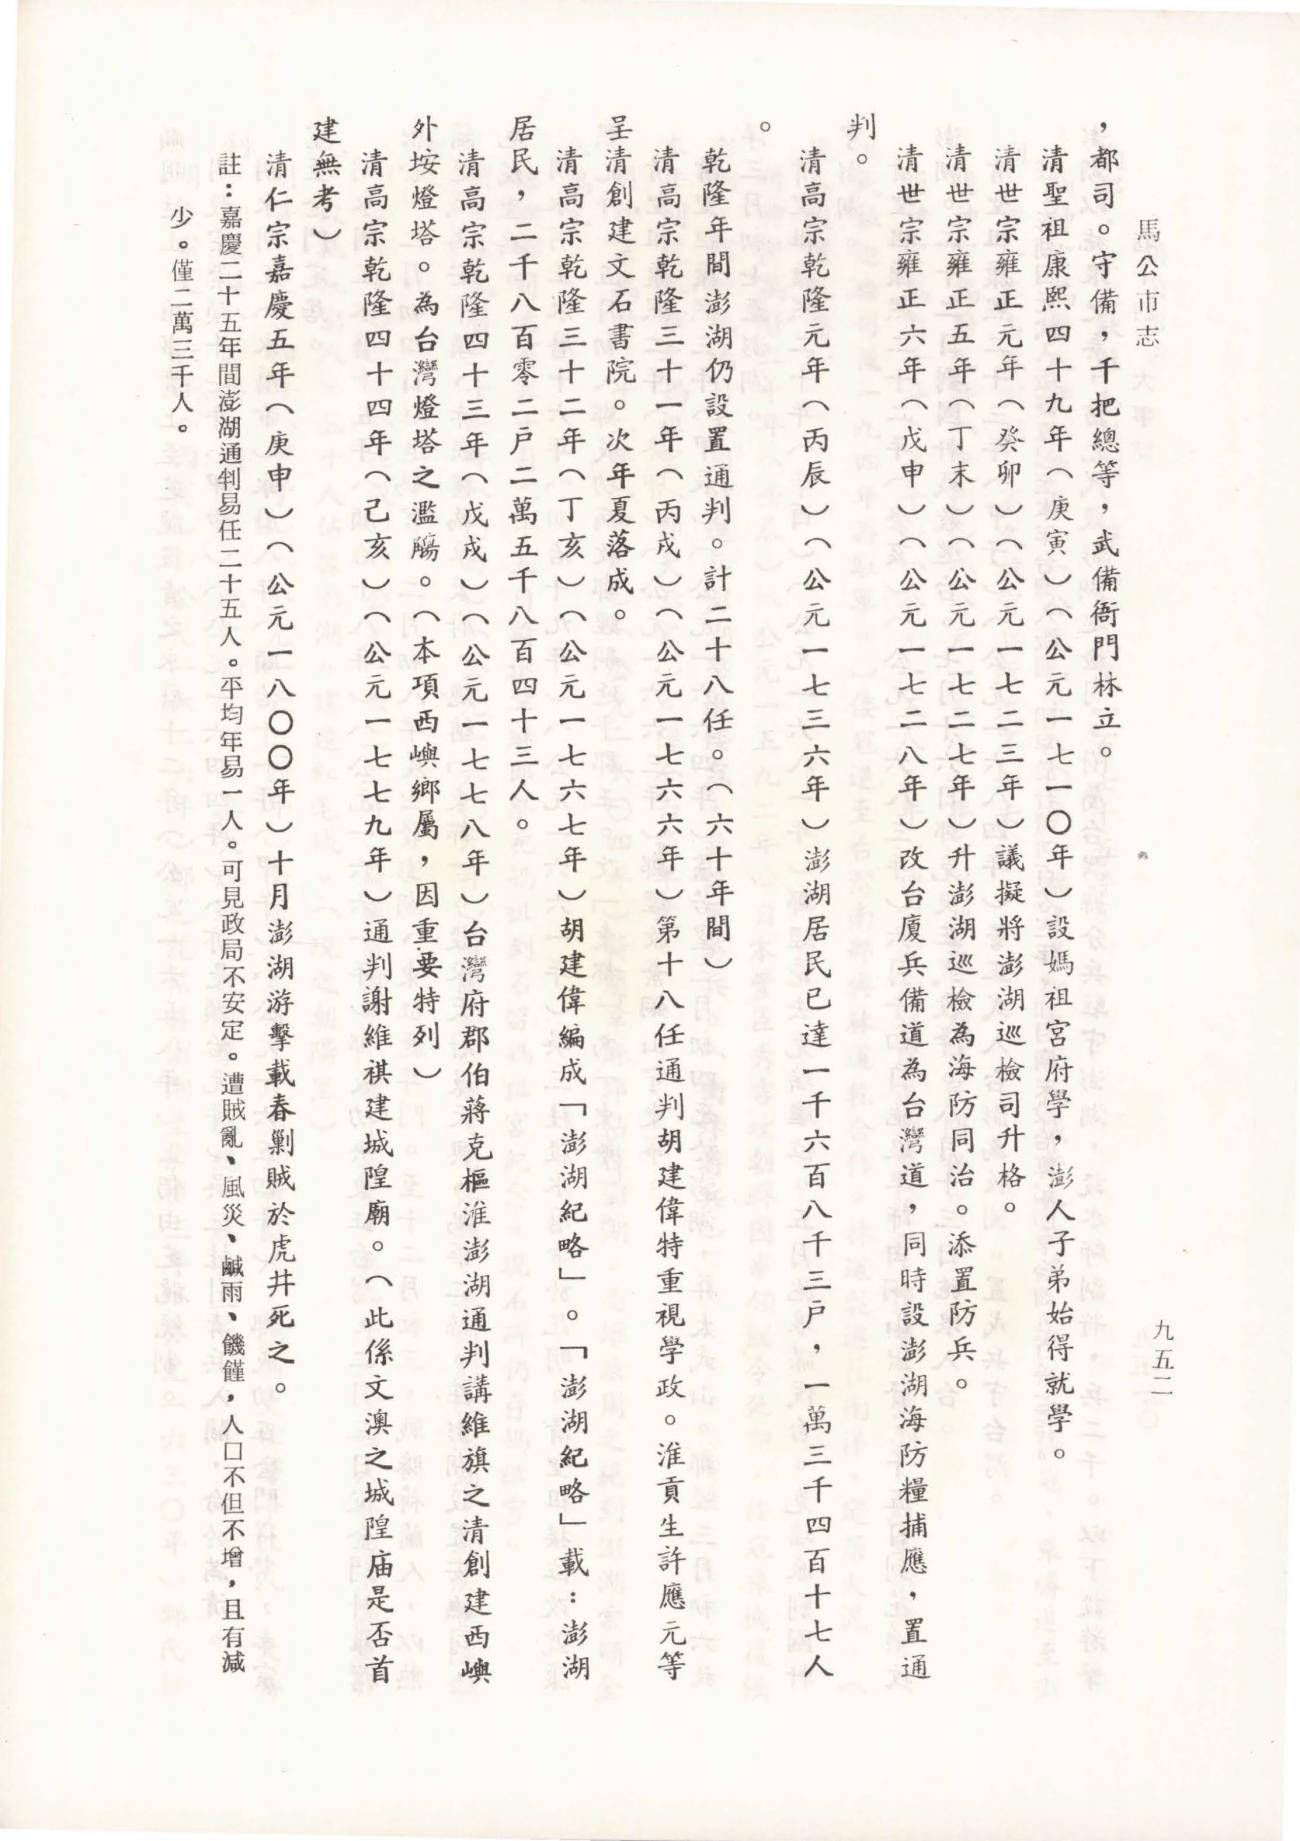 馬公市志
九五二
，都司。守備，千把總等，武備衙門林立。
清聖祖康熙四十九年（庚寅）（公元一七一〇年）設媽祖宮府學，澎人子弟始得就學。
清世宗雍正元年（癸卯）（公元一七二三年）議擬將澎湖巡檢司升格。
清世宗雍正五年（丁未）（公元一七二七年）升澎湖巡檢為海防同治。添置防兵。
清世宗雍正六年（戊申）（公元一七二八年）改台廈兵備道為台灣道，同時設澎湖海防糧捕應，置通
判。
清高宗乾隆元年（丙辰）（公元一七三六年）澎湖居民已達一千六百八千三户，一萬三千四百十七人
。
乾隆年間澎湖仍設置通判。計二十八任。（六十年間）
清高宗乾隆三十一年（丙戌）（公元一七六六年）第十八任通判胡建偉特重視學政。淮貢生許應元等
呈清創建文石書院。次年夏落成。
清高宗乾隆三十二年（丁亥）（公元一七六七年）胡建偉編成「澎湖紀略」。「澎湖紀略」載：澎湖
居民，二千八百零二户二萬五千八百四十三人。
清高宗乾隆四十三年（戊戌）（公元一七七八年）台灣府郡伯蔣克樞淮澎湖通判講維旗之清創建西嶼
外垵燈塔。為台灣燈塔之濫觴。（本項西嶼鄉屬，因重要特列）
清高宗乾隆四十四年（己亥）（公元一七七九年）通判謝維祺建城隍廟。（此係文澳之城隍庙是否首
建無考）
清仁宗嘉慶五年（庚申）（公元一八〇〇年）十月澎湖游擊載春剿賊於虎井死之。
註：嘉慶二十五年間澎湖通判易任二十五人。平均年易一人。可見政局不安定。遭賊亂、風災、鹹雨、饑饉，人口不但不增，且有減
少。僅二萬三千人。